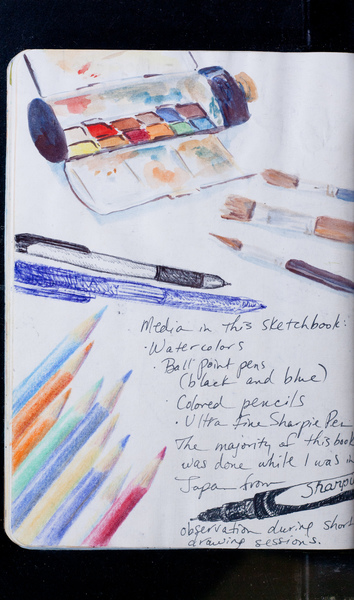 Media in this sketchbook:
· Watercolors
· Ball point pens
(black and blue)
· Colored pencils
· Ultra Fine Sharpie Pen
The majority of this book
was done while I was in
Japan from
Sharpie
observation during short
drawing sessions.